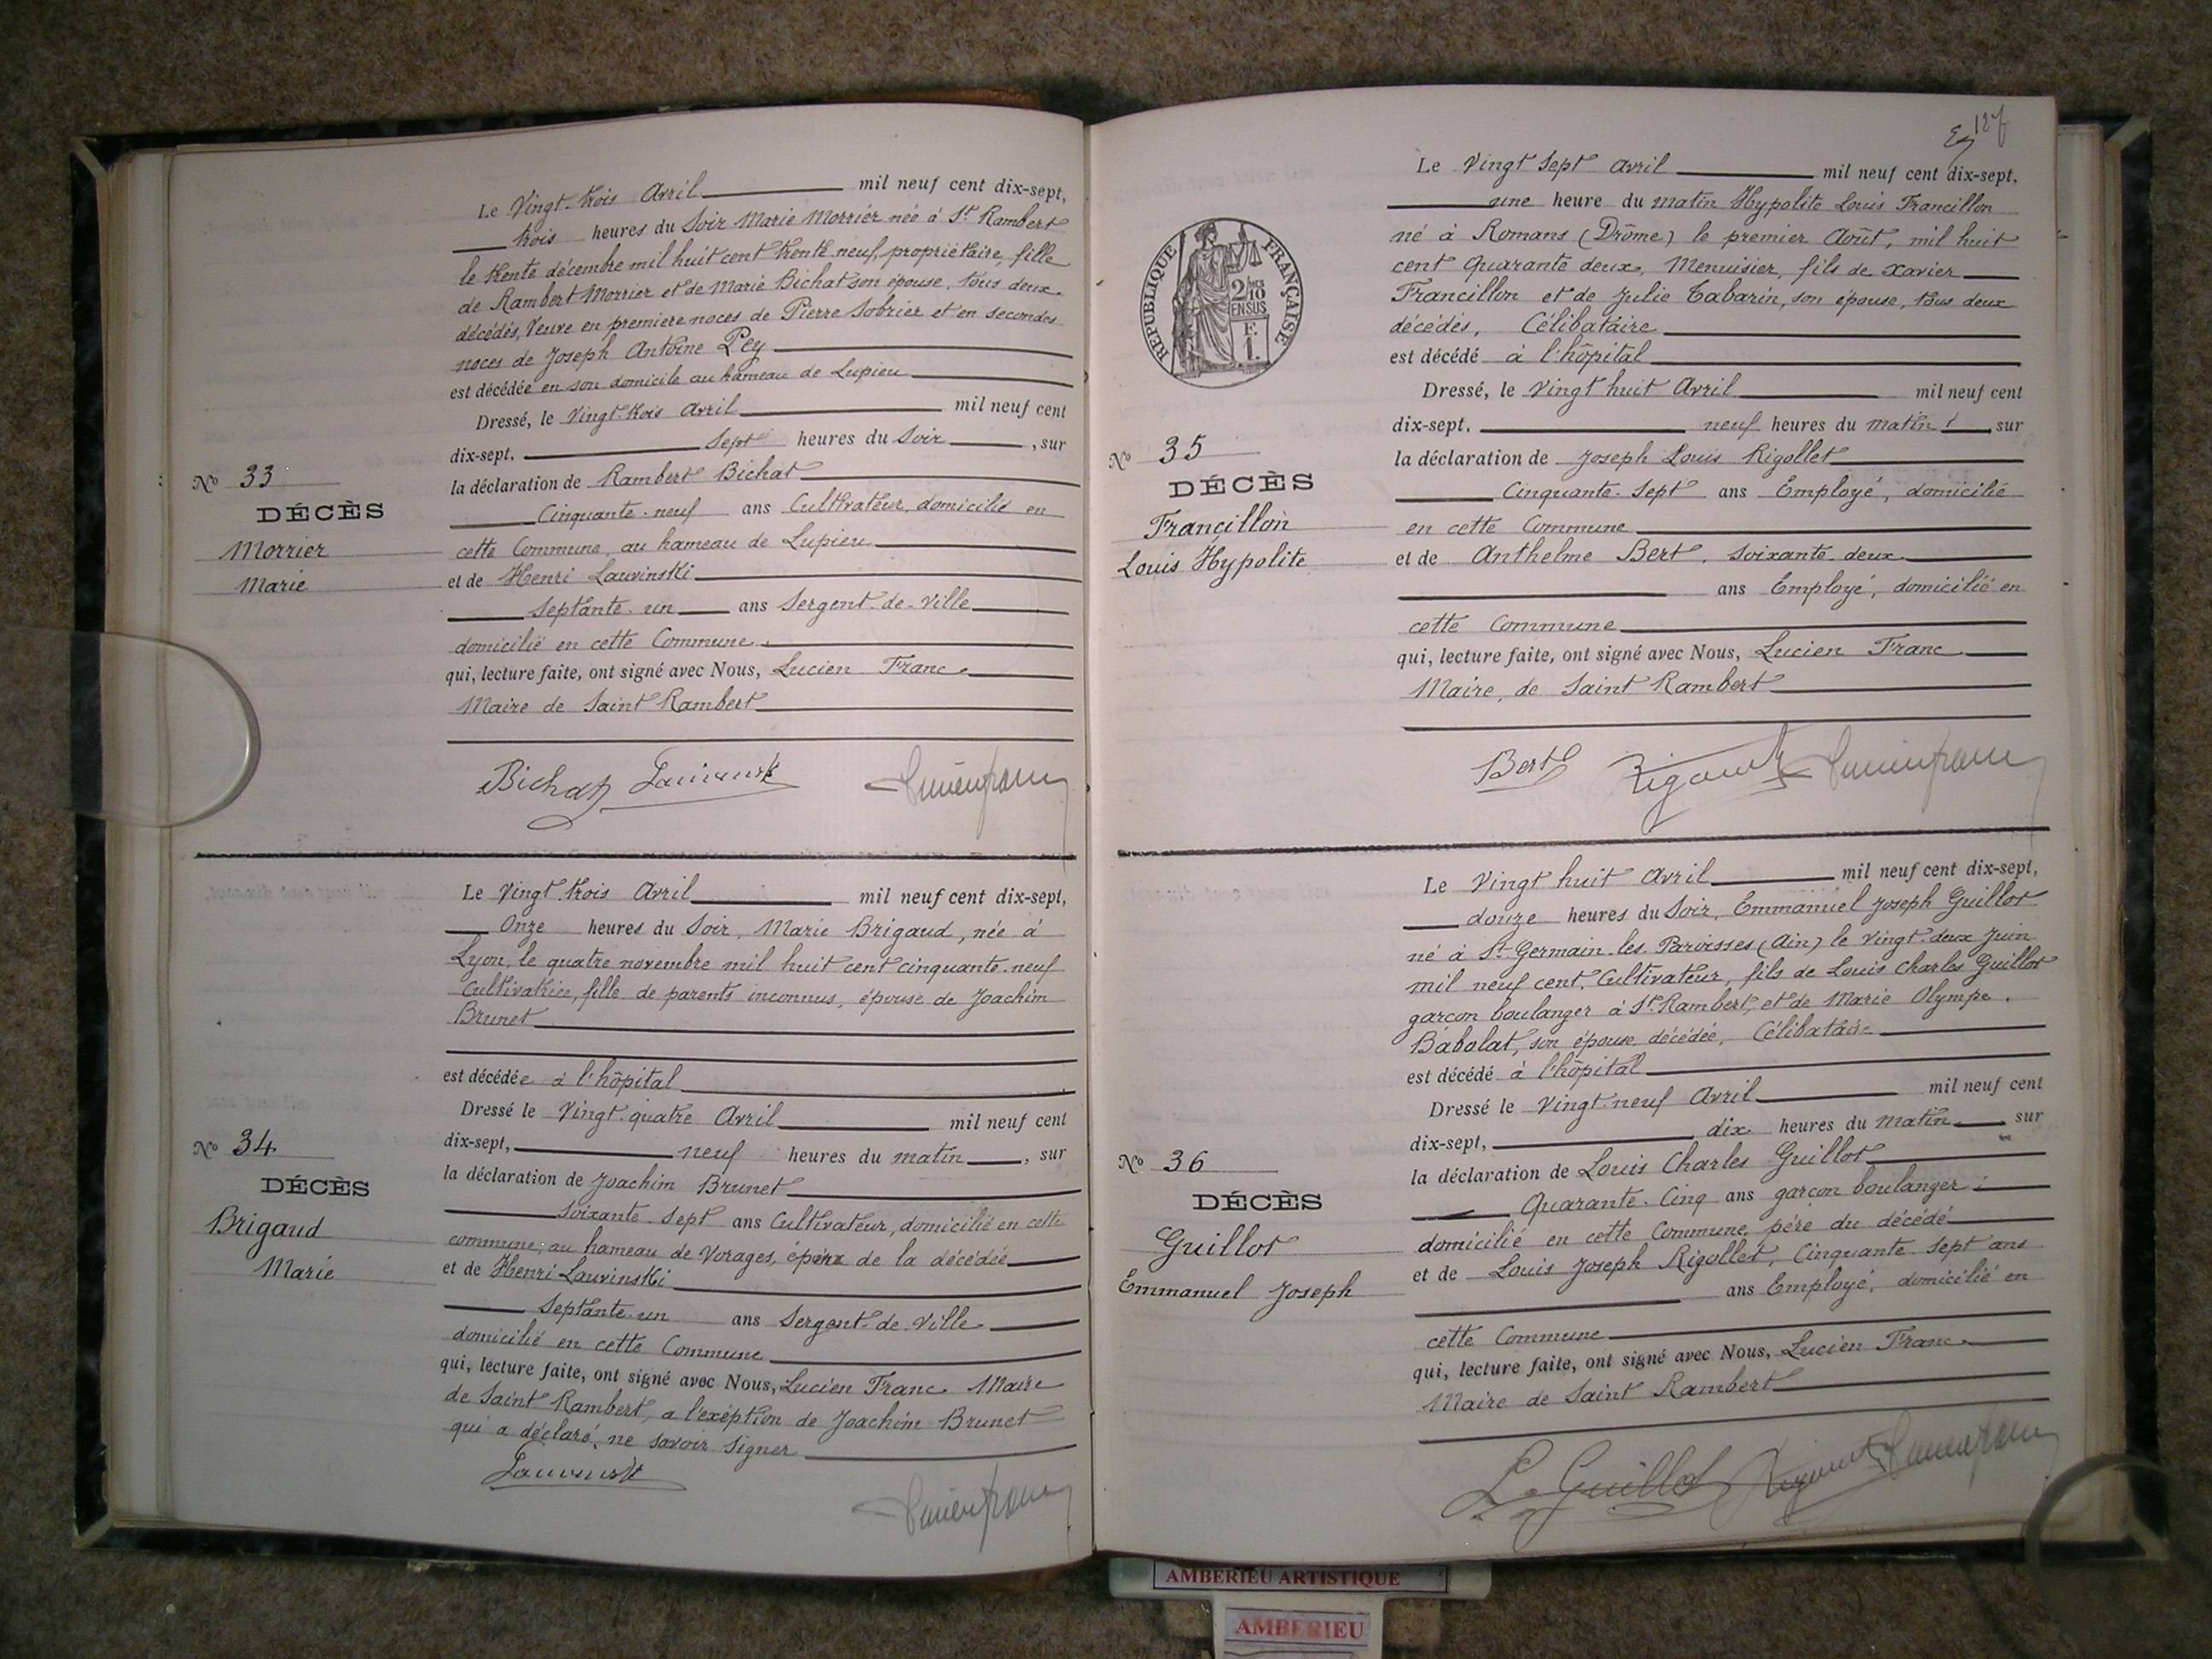 Le Vingt-trois Avril mil neuf cent dix-sept,
trois heures du Soir Marie Morrier née à St Rambert
le trente décembre mil huit cent trente neuf, propriétaire, fille
de Rambert Morrier et de Marie Bichat son épouse, tous deux
décédés, Veuve en premiere noces de Pierre Sobrier et en secondes
noces de Joseph Antoine Pey
est décédée en son domicile au hameau de Lupieu
Dressé, le Vingt-trois Avril mil neuf cent
dix-sept, Sept heures du Soir, sur
la déclaration de Rambert Bichat
Cinquante-neuf ans Cultivateur, domicilié en
cette Commune, au hameau de Lupieu
et de Henri Lauvinski
Septante-un ans Sergent-de-Ville
domicilié en cette Commune
qui, lecture faite, ont signé avec Nous, Lucien Franc
Maire de Saint Rambert
No 33
DÉCÈS
Morrier
Marie
Bichat
Le Vingt-trois Avril mil neuf cent dix-sept,
Onze heures du Soir, Marie Brigaud, née à
Lyon, le quatre novembre mil huit cent cinquante-neuf
Cultivatrice, fille de parents inconnus, épouse de Joachim
Brunet
est décédée à l'hôpital
Dressé le Vingt-quatre Avril mil neuf cent
dix-sept, neuf heures du matin, sur
la déclaration de Joachim Brunet
Soixante-Sept ans Cultivateur, domicilié en cette
commune, au hameau de Vorages, époux de la décédée
et de Henri Lauvinski
Septante-un ans Sergent-de-Ville
domicilié en cette Commune
qui, lecture faite, ont signé avec Nous, Lucien Franc Maire
de Saint Rambert, a l'exéption de Joachim Brunet
qui a déclaré, ne savoir signer
No 34
DÉCÈS
Brigaud
Marie
127
Le Vingt Sept Avril mil neuf cent dix-sept,
une heure du matin Hypolite Louis Francillon
né à Romans (Drôme) le premier Août, mil huit
cent Quarante deux, Menuisier, fils de Xavier
Francillon et de Julie Tabarin, son épouse, tous deux
décédés, Célibataire
est décédé à l'hôpital
Dressé, le Vingt huit Avril mil neuf cent
dix-sept, neuf heures du matin, sur
la déclaration de Joseph Louis Rigollet
Cinquante-Sept ans Employé, domicilié
en cette Commune
et de Anthelme Bert, Soixante-deux
ans Employé, domicilié en
cette Commune
qui, lecture faite, ont signé avec Nous, Lucien Franc
Maire, de Saint Rambert
RÉPUBLIQUE FRANÇAISE
2/10
EN SUS
F.
1.
No 35
DÉCÈS
Francillon
Louis Hypolite
Bert
Le Vingt huit Avril mil neuf cent dix-sept,
douze heures du Soir, Emmanuel Joseph Guillot
né à St-Germain-les-Paroisses (Ain) le Vingt-deux Juin
mil neuf cent, Cultivateur, fils de Louis Charles Guillot
garçon boulanger à St Rambert, et de Marie Olympe
Babolat, son épouse décédée, Célibataire
est décédé à l'hôpital
Dressé le Vingt-neuf Avril mil neuf cent
dix-sept, dix heures du matin sur
la déclaration de Louis Charles Guillot
Quarante-Cinq ans garçon boulanger
domicilié en cette Commune, père du décédé
et de Louis Joseph Rigollet, Cinquante Sept ans
ans Employé, domicilié en
cette Commune
qui, lecture faite, ont signé avec Nous, Lucien Franc
Maire de Saint Rambert
No 36
DÉCÈS
Guillot
Emmanuel Joseph
L. Guillot
AMBERIEU ARTISTIQUE
AMBERIEU